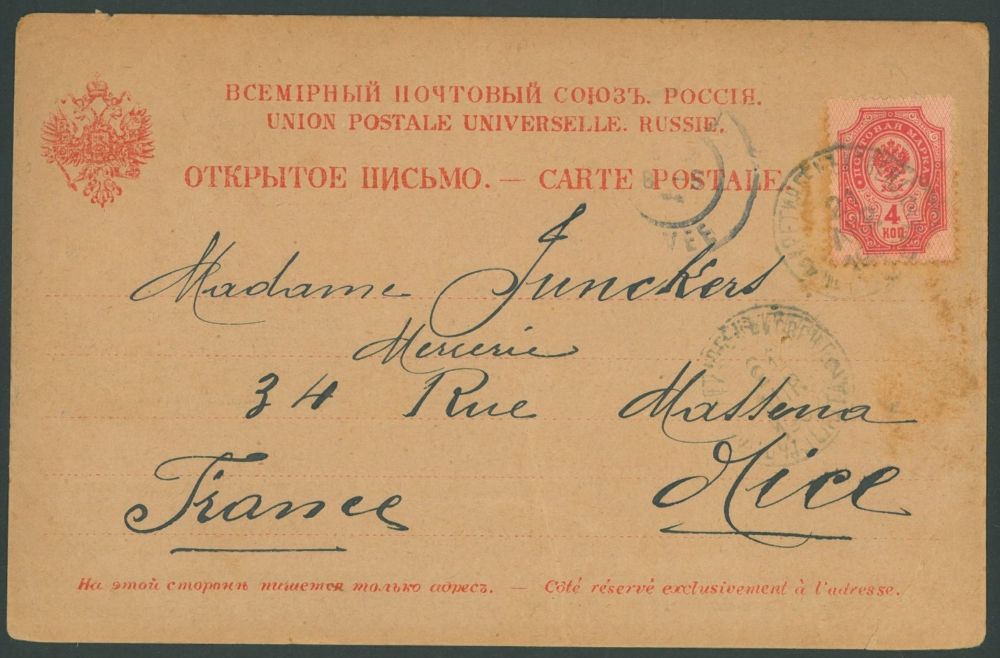 ВСЕМІРНЫЙ ПОЧТОВЫЙ СОЮЗЪ. РОССІЯ.
UNION POSTALE UNIVERSELLE. RUSSIE.
ОТКРЫТОЕ ПИСЬМО. — CARTE POSTALE
ПОЧТОВАЯ МАРКА
4
КОП.
Madame Junckers
Mercerie
34 Rue Massena
Nice
France
На этой сторонѣ пишется только адресъ. — Côté réservé exclusivement à l'adresse.